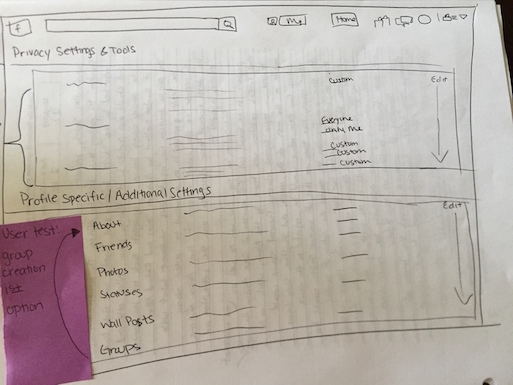 f My Home
Privacy Settings & Tools
Custom Edit
Everyone
only me
Custom
Custom
Custom
Profile Specific / Additional Settings
Edit
User test:
group
creation
1st
option
About
Friends
Photos
Statuses
Wall Posts
Groups